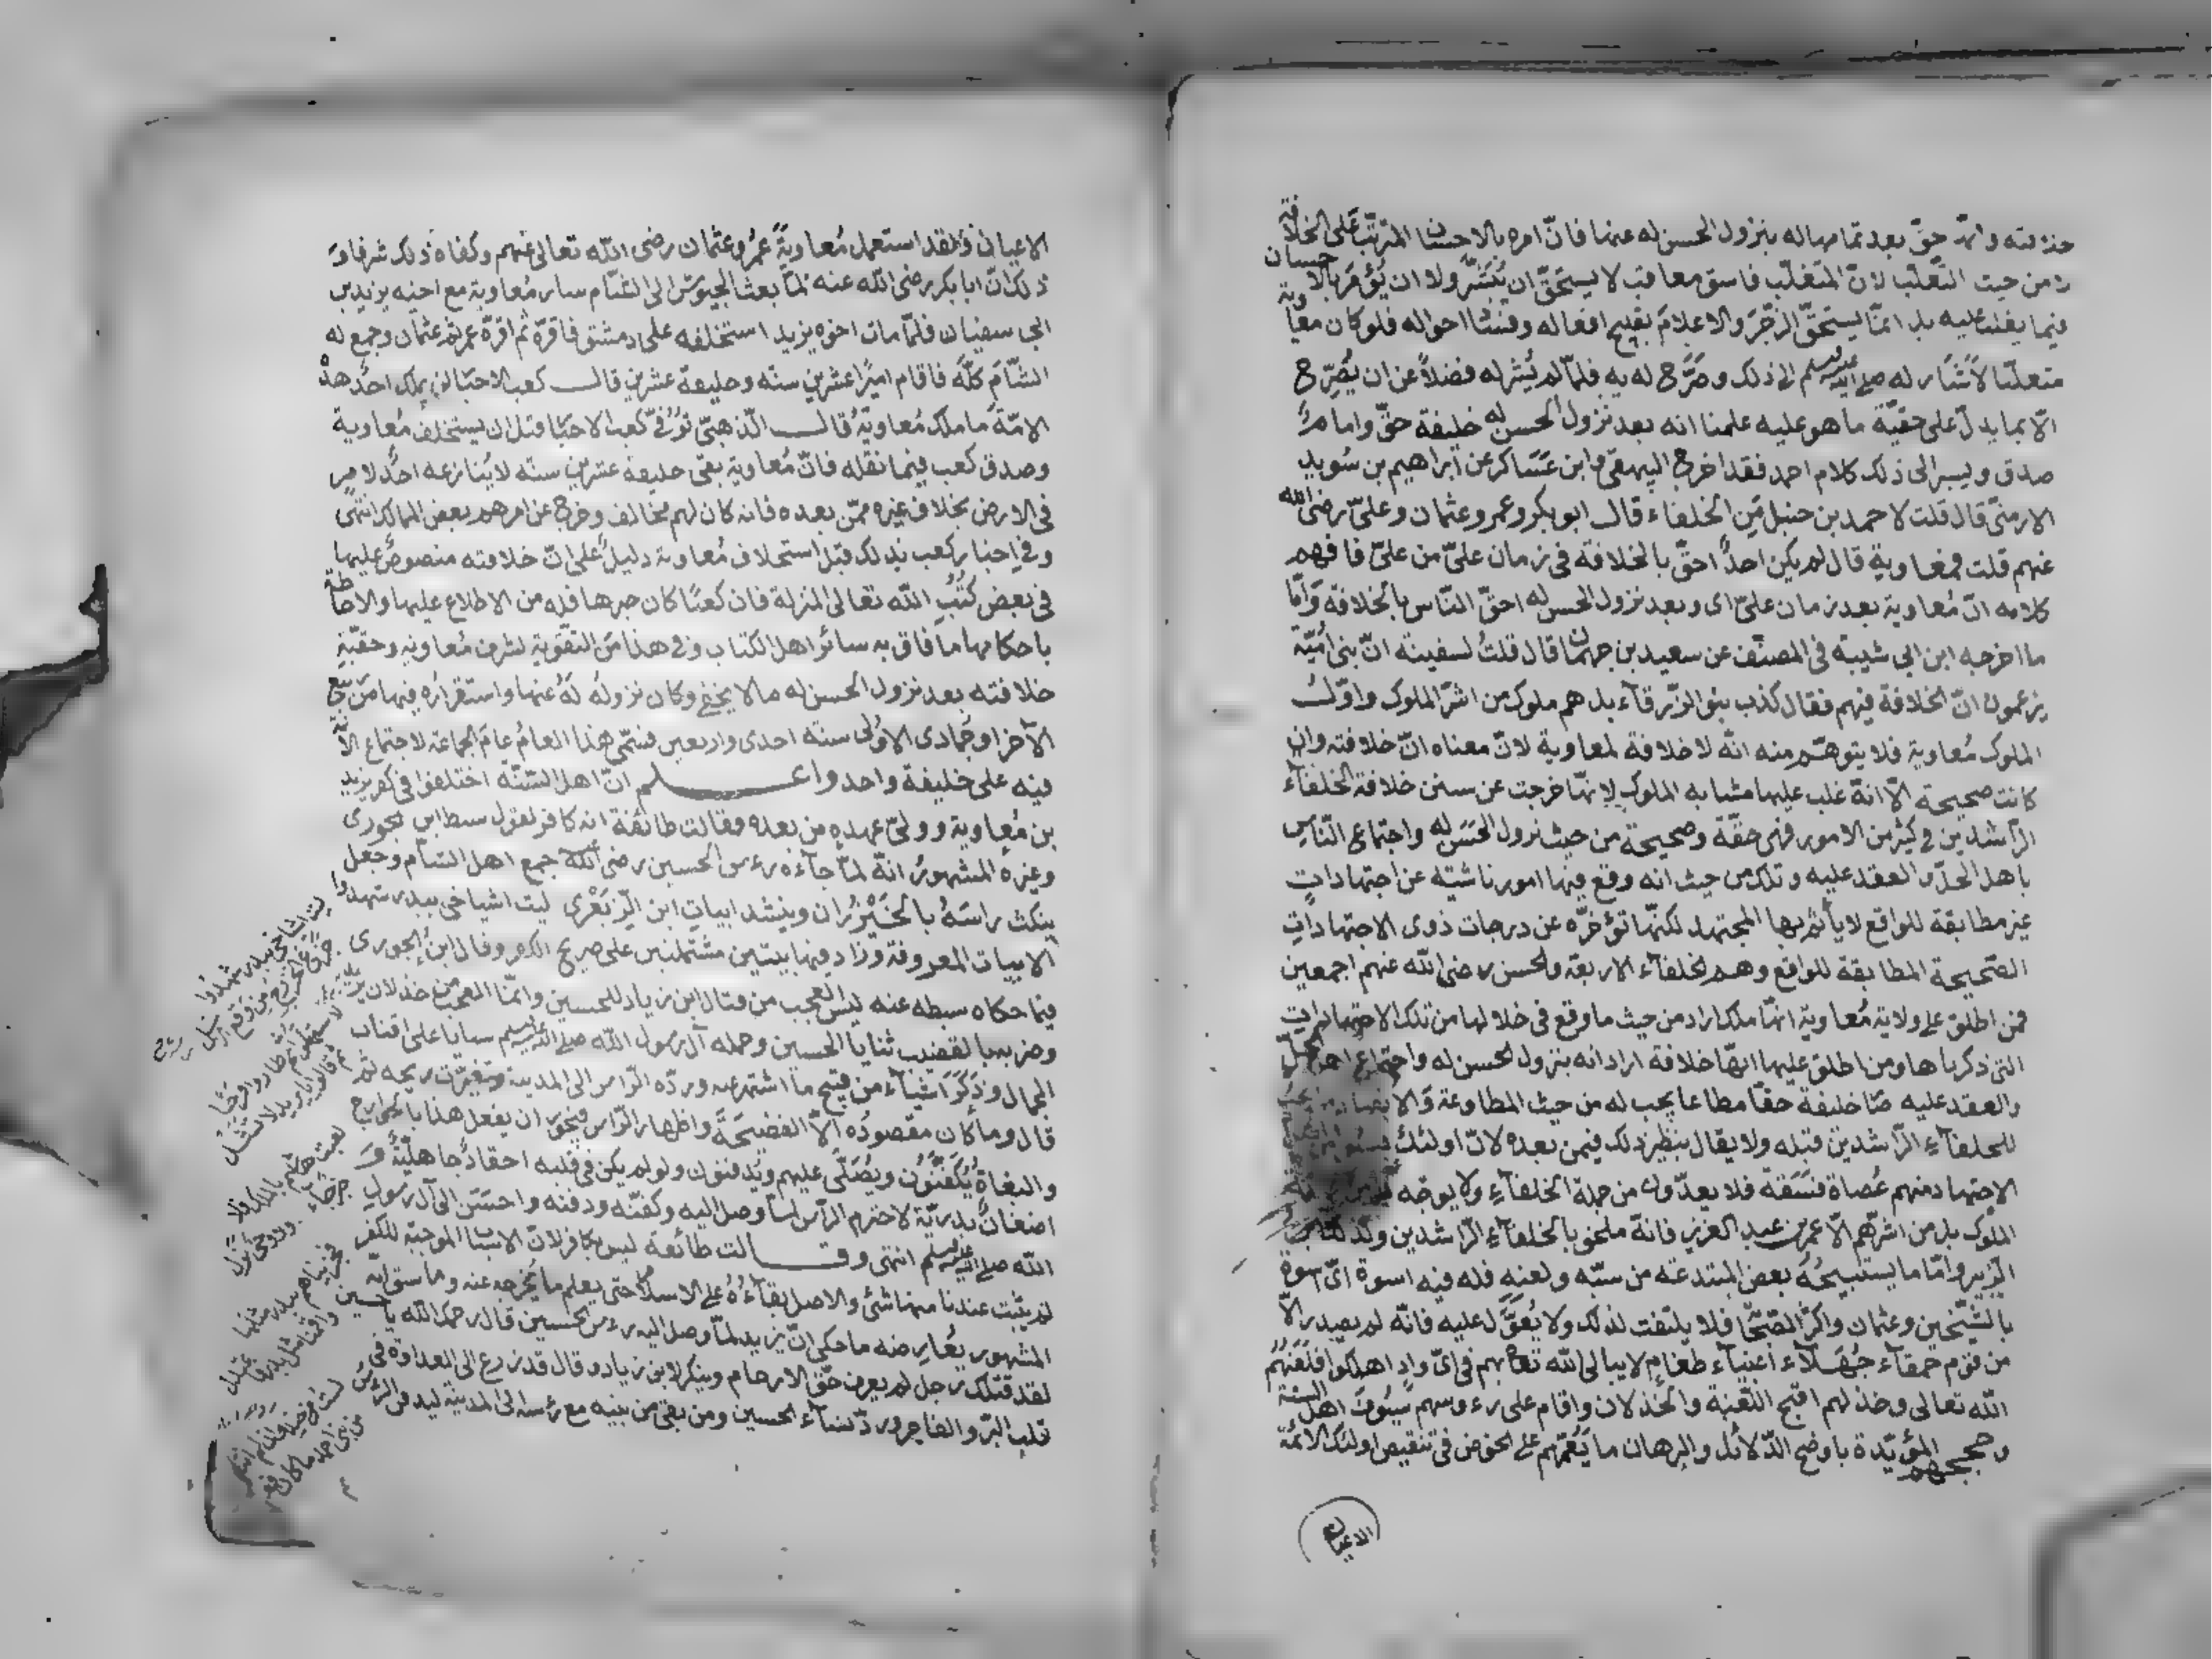 خلافته وانه حق بعد تمامها له بنزول الحسن له عنها فان امره بالاحسان المترتب على الخلافة
لا من حيث التغلب لان المتغلب فاسق معاقب لا يستحق ان يبشر ولا ان يؤمر بالاحسان
فيما يغلب عليه بل انما يستحق الزجر والاعلام بقبيح افعاله وفساد احواله فلو كان معاوية
متغلبا لاشار له صلى الله عليه وسلم الى ذلك وصرح له به فلما لم يشر له فضلا عن ان يصرح
الا بما يدل على حقية ما هو عليه علمنا انه بعد نزول الحسن له خليفة حق وامام
صدق ويشير الى ذلك كلام احمد فقد اخرج البيهقي وابن عساكر عن ابراهيم بن سويد
الارمني قال قلت لاحمد بن حنبل من الخلفاء قال ابو بكر وعمر وعثمان وعلي رضي الله
عنهم قلت فمعاوية قال لم يكن احد احق بالخلافة في زمان علي من علي فافهم
كلامه ان معاوية بعد زمان علي اى وبعد نزول الحسن له احق الناس بالخلافة واما
ما اخرجه ابن ابي شيبة في المصنف عن سعيد بن جهمان قال قلت لسفينة ان بني امية
يزعمون ان الخلافة فيهم فقال كذب بنو الزرقاء بل هم ملوك من اشر الملوك واول
الملوك معاوية فلا يتوهم منه انه لا خلافة لمعاوية لان معناه ان خلافته وان
كانت صحيحة الا انه غلب عليها مشابه الملوك لانها خرجت عن سنن خلافة الخلفاء
الراشدين في كثير من الامور فهي حقة وصحيحة من حيث نزول الحسن له واجتماع الناس
باهل الحل والعقد عليه وتلك من حيث انه وقع فيها امور ناشئة عن اجتهادات
غير مطابقة للواقع لا يأثم بها المجتهد لكنها تؤخره عن درجات ذوى الاجتهادات
الصحيحة المطابقة للواقع وهم الخلفاء الاربعة والحسن رضي الله عنهم اجمعين
فمن اطلق على ولاية معاوية انها ملك اراد من حيث ما وقع في خلالها من تلك الاجتهادات
التي ذكرناها ومن اطلق عليها انها خلافة اراد انه بنزول الحسن له واجتماع اهل الحل
والعقد عليه صار خليفة حقا مطاعا يجب له من حيث المطاوعة والانقياد
للخلفاء الراشدين قبله ولا يقال بنظير ذلك فيمن بعده لان اولئك ليسوا
الاجتهاد منهم عصاة فسقة فلا يعدون من جملة الخلفاء ولا بوجه
الملوك بل من اشرهم الا عمر بن عبد العزيز فانه ملحق بالخلفاء الراشدين وكذلك ابن
الزبير واما ما يستبيحه بعض المبتدعة من سبه ولعنه فله فيه اسوة اى اسوة
بالشيخين وعثمان واكثر الصحابة فلا يلتفت لذلك ولا يعول عليه فانه لم يصدر الا
من قوم حمقاء جهلاء اغبياء طغام لا يبالي الله تعالى بهم في اى واد اهلكوا فلعنهم
الله تعالى وخذلهم اقبح اللعنة والخذلان واقام على رءوسهم سيوف اهل السنة
وحججهم المؤيدة باوضح الدلائل والبرهان ما يقمعهم على الخوض في تنقيص اولئك الائمة
الاعيان
الاعيان ولقد استعمل معاوية عمر وعثمان رضي الله تعالى عنهم وكفاه ذلك شرفا و
ذلك ان ابا بكر رضي الله عنه لما بعث الجيوش الى الشام سار معاوية مع اخيه يزيد بن
ابي سفيان فلما مات اخوه يزيد استخلفه على دمشق فاقره ثم اقره عمر ثم عثمان وجمع له
الشام كله فاقام اميرا عشرين سنة وخليفة عشرين قال كعب الاحبار لن يملك احد هذه
الامة ما ملك معاوية قال الذهبي توفي كعب الاحبار قبل ان يستخلف معاوية
وصدق كعب فيما نقله فان معاوية بقي خليفة عشرين سنة لا ينازعه احد الامر
في الارض بخلاف غيره ممن بعده فانه كان لهم مخالف وخرج عن امرهم بعض الممالك انتهى
وفي اخبار كعب بذلك قبل استخلاف معاوية دليل على ان خلافته منصوص عليها
في بعض كتب الله تعالى المنزلة فان كعبا كان حبرها فله من الاطلاع عليها والاحاطة
باحكامها ما فاق به سائر اهل الكتاب وفي هذا من التقوية لشرف معاوية وحقية
خلافته بعد نزول الحسن له ما لا يخفى وكان نزوله له عنها واستقراره فيها من ربيع
الآخر او جمادى الاولى سنة احدى واربعين فسمي هذا العام عام الجماعة لاجتماع الامة
فيه على خليفة واحد واعلم ان اهل السنة اختلفوا في كفر يزيد
بن معاوية وولي عهده من بعده فقالت طائفة انه كافر لقول سبط ابن الجوزى
وغيره المشهور انه لما جاءه رءس الحسين رضي الله عنه جمع اهل الشام وجعل
ينكث راسه بالخيزران وينشد ابيات ابن الزبعرى ليت اشياخي ببدر شهدوا
الابيات المعروفة وزاد فيها بيتين مشتملين على صريح الكفر وقال ابن الجوزى
فيما حكاه سبطه عنه ليس العجب من قتال ابن زياد للحسين وانما العجب من خذلان يزيد
وضربه بالقضيب ثنايا الحسين وحمله آل رسول الله صلى الله عليه وسلم سبايا على اقتاب
الجمال وذكر اشياء من قبيح ما اشتهر عنه ورده الراس الى المدينة وتغيرت ريحه ثم
قال وما كان مقصوده الا الفضيحة واظهار الراس فيجوز ان يفعل هذا بالخوارج
والبغاة يكفنون ويصلى عليهم ويدفنون ولو لم يكن في قلبه احقاد جاهلية و
اضغان بدرية لاحترم الراس لما وصل اليه وكفنه ودفنه واحسن الى آل رسول
الله صلى الله عليه وسلم انتهى وقالت طائفة ليس بكافر لان الاسباب الموجبة للكفر
لم يثبت عندنا منها شئ والاصل بقاءه على الاسلام حتى يعلم ما يخرجه عنه وما سبق انه
المشهور يعارضه ما حكى ان يزيد لما وصل اليه رءس الحسين قال رحمك الله يا حسين
لقد قتلك رجل لم يعرف حق الارحام وينكر لابن زياد وقال قد زرع الى العداوة في
قلب البر والفاجر ورد نساء الحسين ومن بقي من بنيه مع رأسه الى المدينة ليدفن الراس
ليت اشياخي ببدر شهدوا
جزع الخزرج من وقع الاسل
ثم قالوا يا يزيد لا تشل
لعبت هاشم بالملك فلا
لست من خندف ان لم انتقم
من بني احمد ما كان فعل